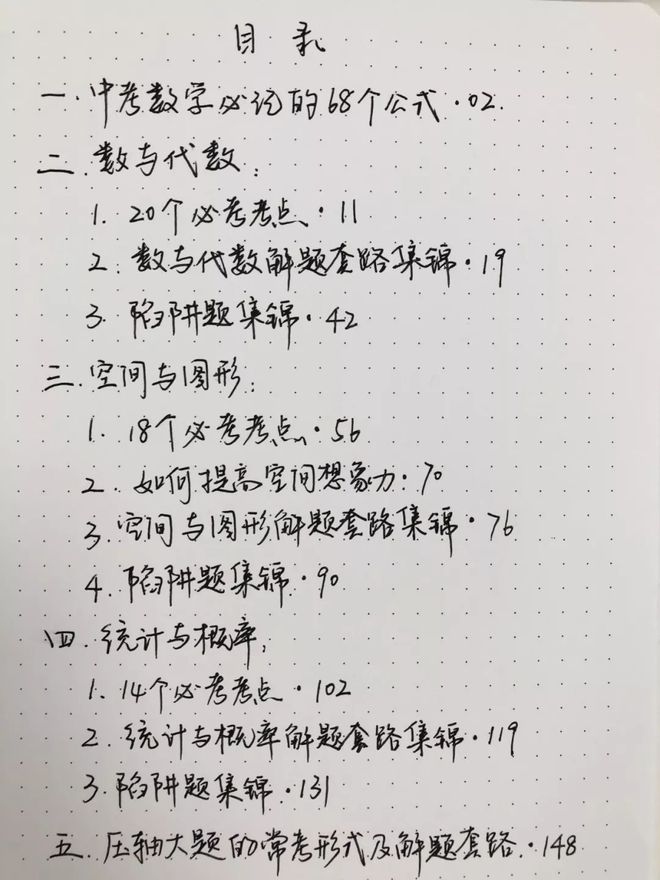 目 录
一.中考数学必记的68个公式·02.
二.数与代数:
1. 20个必考考点·11
2. 数与代数解题套路集锦·19
3. 陷阱题集锦·42
三.空间与图形:
1. 18个必考考点·56
2. 如何提高空间想象力·70
3.空间与图形解题套路集锦·76
4.陷阱题集锦·90
四.统计与概率:
1. 14个必考考点·102
2. 统计与概率解题套路集锦·119
3.陷阱题集锦·131
五.压轴大题的常考形式及解题套路·148